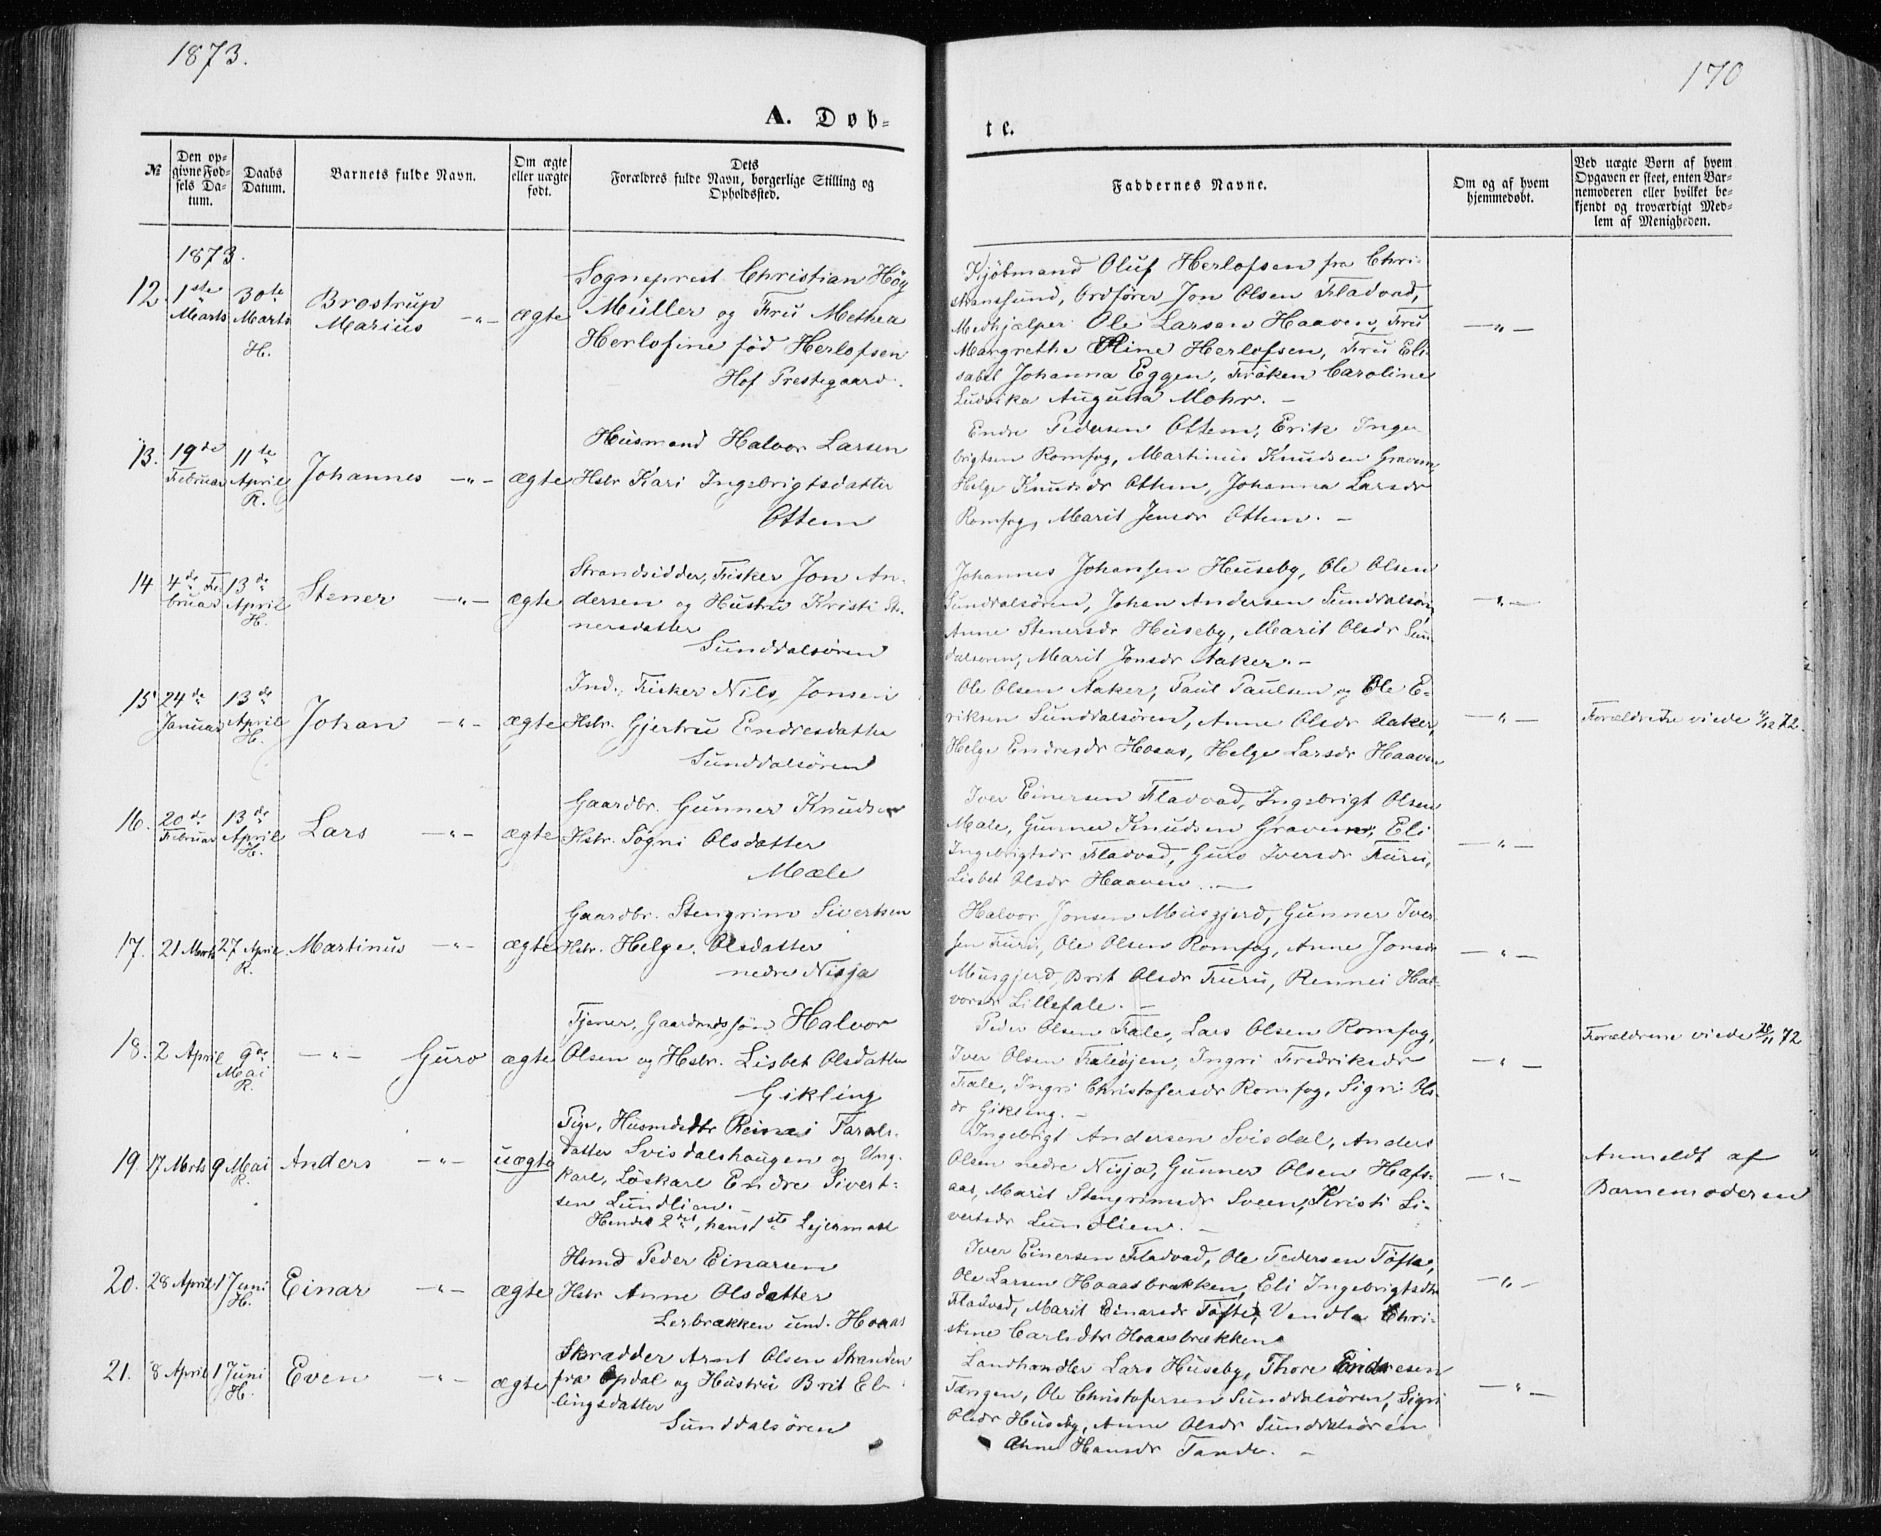 1873.
170
A. Døb-
te.
№
Den op-
givne Fød-
sels Da-
tum.
Daabs
Datum.
Barnets fulde Navn.
Om ægte
eller uægte
født.
Dets
Forældres fulde Navn, borgerlige Stilling og
Opholdssted.
Faddernes Navne.
Om og af hvem
hjemmedøbt.
Ved uægte Børn af hvem
Opgaven er skeet, enten Bar-
nemoderen eller hvilket be-
kjendt og troværdigt Med-
lem af Menigheden.
1873.
12
1ste
Marts
30te
Marts
H.
Brostrup
Marius
-"-
ægte
Sogneprest Christian Höy
Müller og Fru Methea
Herlofine fød Herlofsen
Hof Prestegaard.
Kjöbmand Oluf Herlofsen fra Chri-
stiansund, Ordförer Jon Olsen Fladvad,
Medhjælper Ole Larsen Haaven, Fru
Margrethe Oline Herlofsen, Fru Eli-
sabet Johanna Eggen, Fröken Caroline
Ludvika Augusta Mohr. -
-"-
13.
19de
Februar
11te
April
R.
Johannes
-"-
ægte
Husmand Halvor Larsen
Hstr Kari Ingebrigtsdatter
Ottem
Endre Pedersen Ottem, Erik Inge-
brigtsen Romfog, Martinus Knudsen Gravem,
Helge Knudsdr Ottem, Johanna Larsdr
Romfog, Marit Jensdr Ottem. -
14
4de Fe-
bruar
13de
April
H.
Stener
-"-
ægte
Strandsidder, Fisker Jon An-
dersen og Hustru Kristi Ste-
nersdatter
Sunddalsören
Johannes Johansen Huseby, Ole Olsen
Sunddalsören, Johan Andersen Sunddalsör,
Anne Stenersdr Huseby, Marit Olsdr Sun-
dalsören, Marit Jonsdr Aaker. -
-"-
15
24de
Januar
13de
April
H.
Johan
-"-
ægte
Ind., Fisker Nils Jonsen
Hstr. Gjertru Endresdatter
Sunddalsören
Ole Olsen Aaker, Paul Paulsen og Ole E-
riksen Sunddalsören, Anne Olsdr Aaker,
Helge Endresdr Hoaas, Helge Larsdr Haaven
-"-
Forældrene viede 72.
16.
20de
Februar
13de
April
H.
Lars
-"-
ægte
Gaardbr. Gunner Knudsen
Hstr. Sogni Olsdatter
Mæle
Iver Einersen Fladvad, Ingebrigt Olsen
Mæle, Gunner Knudsen Gravem, Eli
Ingebrigtsdr Fladvad, Guro Iversdr Furu,
Lisbet Olsdr Haaven. -
-"-
17.
21 Marts
27 April
R.
Martinus
-"-
ægte
Gaardbr. Stengrim Sivertsen
Hstr. Helge Olsdatter
nedre Nisja
Halvor Jonsen Musgjerd, Gunner Iver-
sen Furu, Ole Olsen Romfog, Anne Jonsdr
Musgjerd, Brit Olsdr Furu, Rennei Hal-
vorsdr Lillefale. -
-"-
18.
2 April
9de
Mai
R.
-"-
Guro
ægte
Tjener, Gaardmdssön Halvor
Olsen og Hstr. Lisbet Olsdatter
Gikling
Peder Olsen Fale, Lars Olsen Romfog,
Iver Olsen Faleöjen, Ingri Fredriksdr
Fale, Ingri Christofersdr Romfog, Sigri Ols-
dr Gikling. -
-"-
Forældrene viede 28/11 72
19.
17 Mrts
9 Mai
R.
Anders
-"-
uægte
Pige, Husmdsdtr Rennei Tarals-
datter Svisdalshaugen og Ung-
karl, Löskarl Endre Sivert-
sen Lundlien. -
Hendes 2det, hans 1ste Lejermaal
Ingebrigt Andersen Svisdal, Anders
Olsen nedre Nisja, Gunner Olsen Hafs-
aas, Marit Stengrimsdr Sveen, Kristi Si-
vertsdr Lundlien. -
-"-
Anmeldt af
Barnemoderen
20.
28 April
1 Juni
H.
Einar
-"-
ægte
Hsmd Peder Einarsen
Hstr Anne Olsdatter
Lerbrækken und. Hoaas
Iver Einersen Fladvad, Ole Pedersen Töfte,
Ole Larsen Hoaasbrækken, Eli Ingebrigtsdtr
Fladvad, Marit Einarsdr Töfte, Vendla Chri-
stine Carlsdtr Hoaasbrækken
-"-
21.
8 April
1 Juni
H.
Even
-"-
ægte
Skrædder Arnt Olsen Stranden
fra Opdal og Hustru Brit El-
lingsdatter
Sunddalsören
Landhandler Lars Huseby, Thore Endresen
Tangen, Ole Christofersen Sunddalsören, Sigri
Olsdr Huseby, Anne Olsdr Sunddalsören
Ahne Hansdr Tande. -
-"-